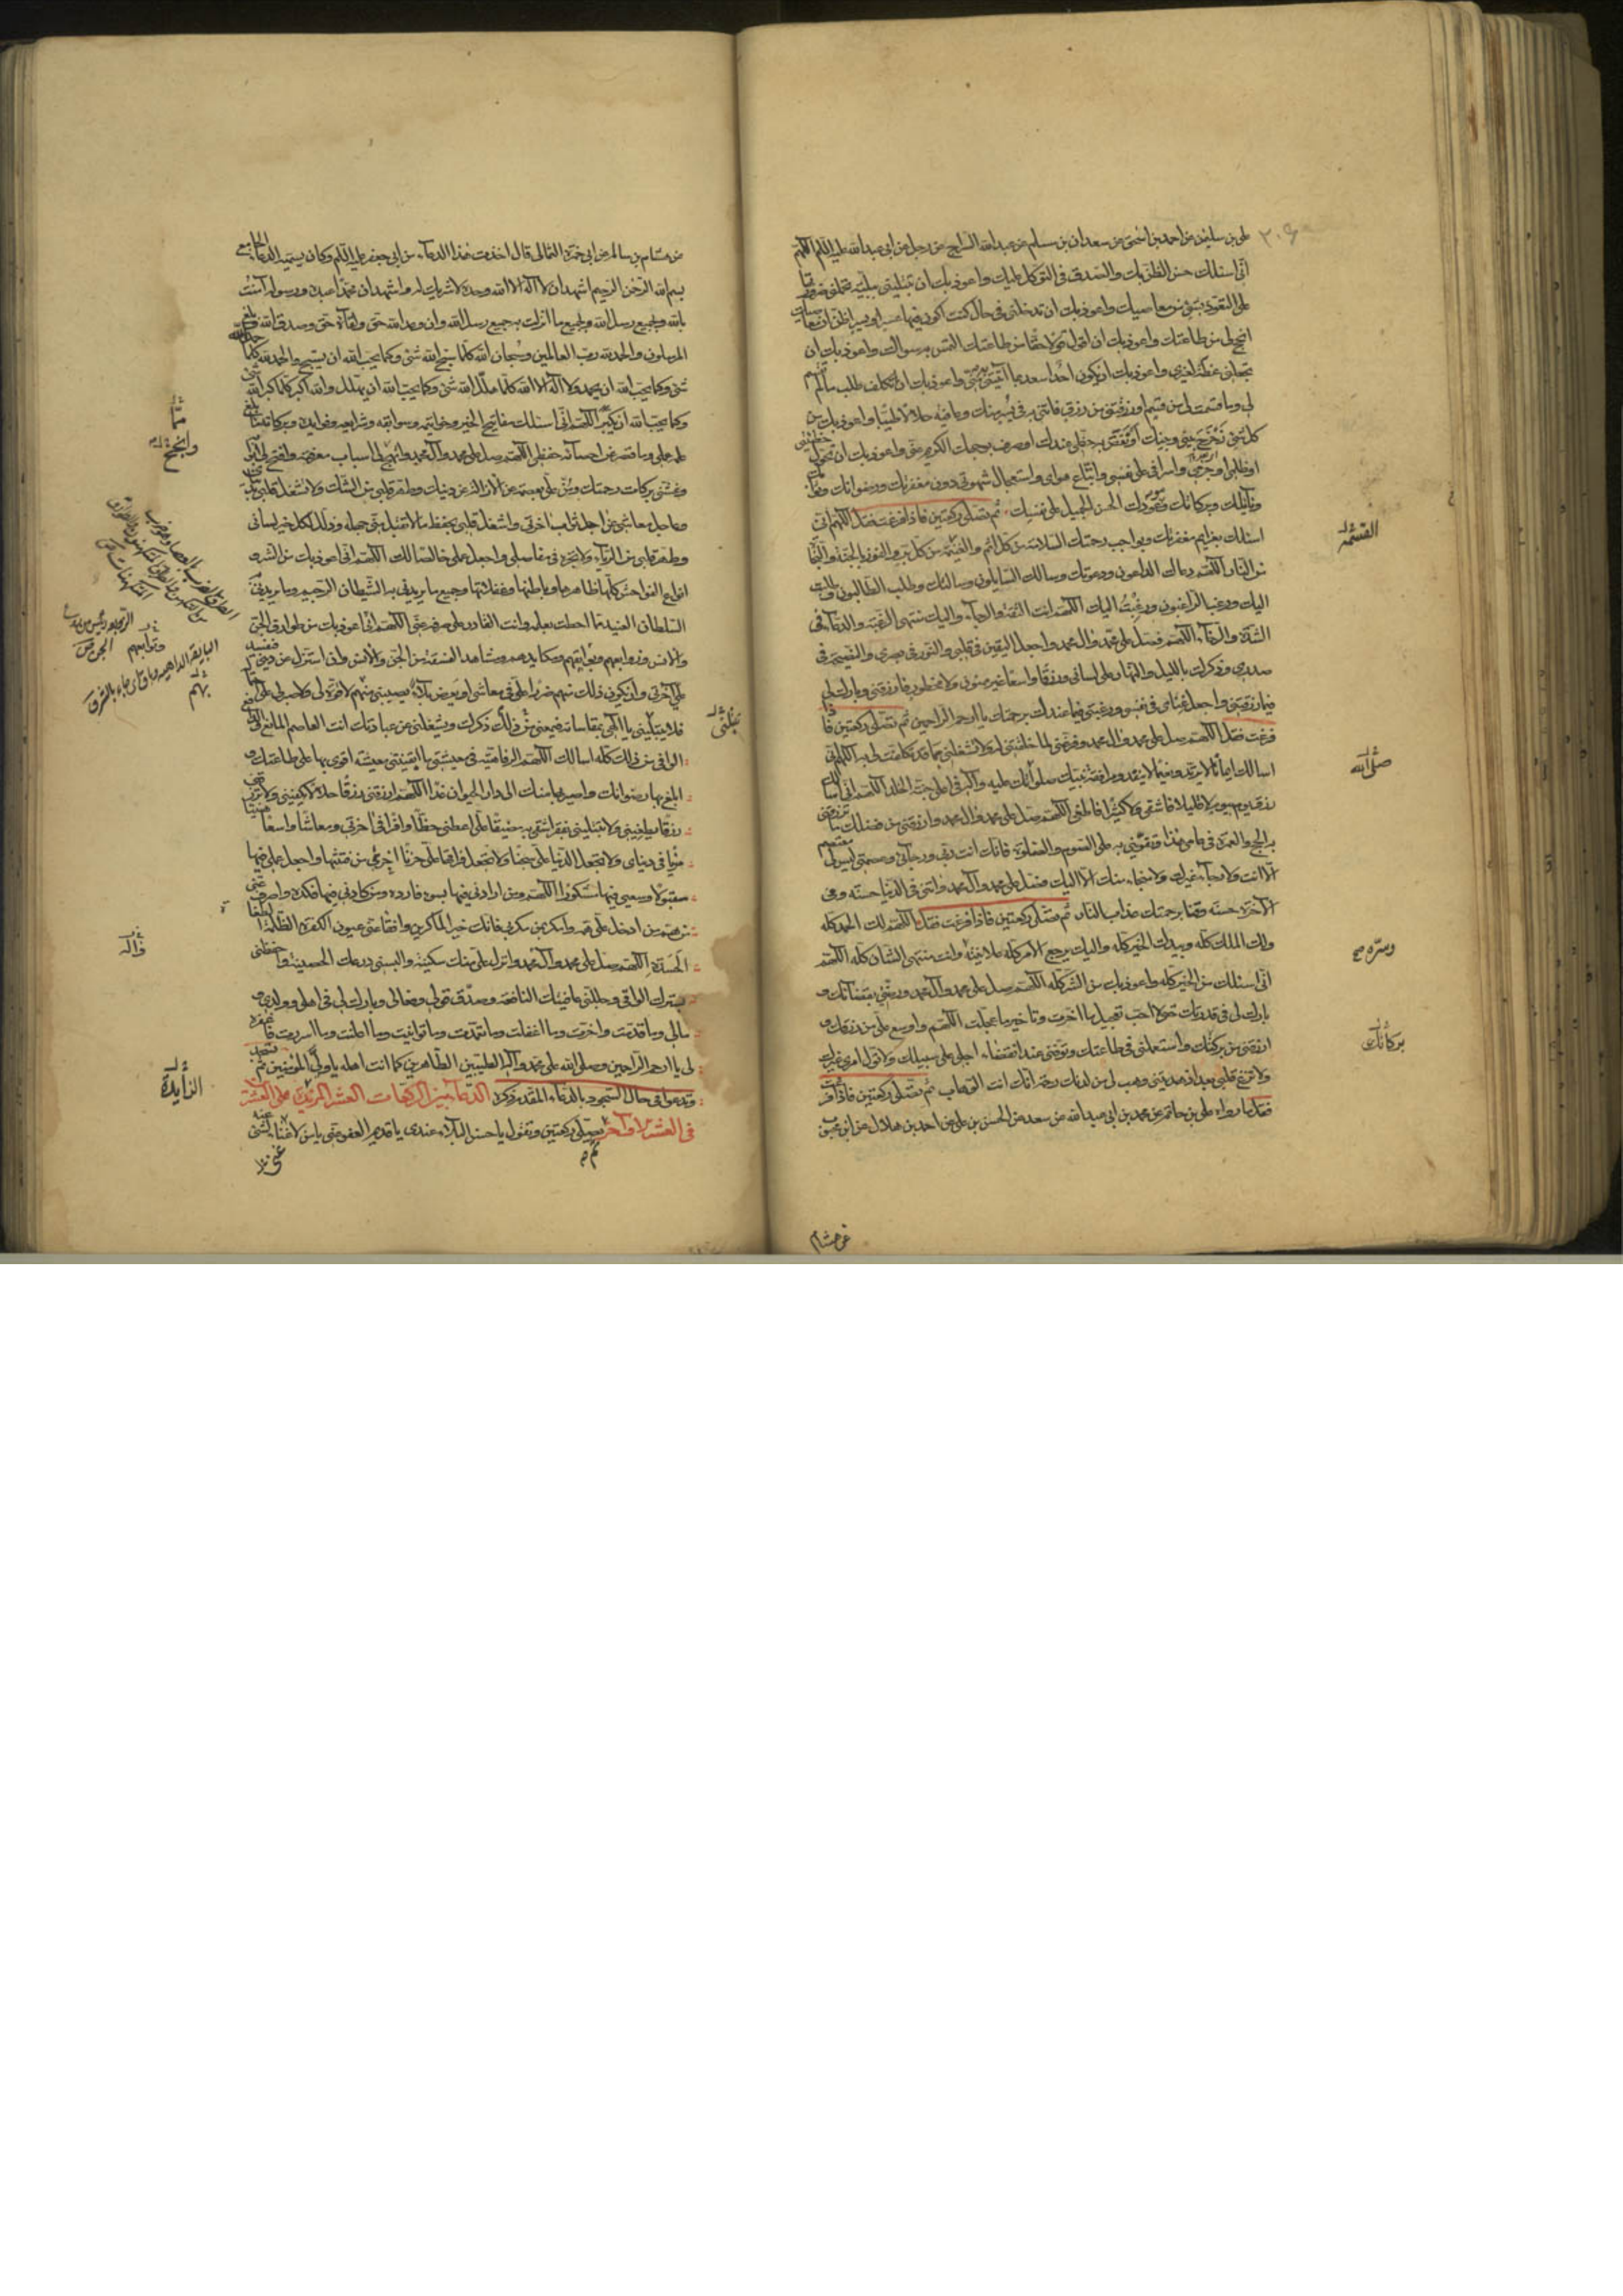 على بن سليمن عن احمد بن اسحق عن سعدان بن مسلم عن عبد الله السراج عن رجل عن ابى عبد الله عليه السلام اللهم
انى اسئلك حسن الظن بك والصدق فى التوكل عليك واعوذ بك ان تبتلينى ببلية تحملنى ضرورتها
على التغوث بشئ من معاصيك واعوذ بك ان تدخلنى فى حال كنت اكون فيها فى عسر او يسر اظن ان معاصيك
انجح لى من طاعتك واعوذ بك ان اقول قولا حقا من طاعتك التمس به سواك واعوذ بك ان
تجعلنى عظة لغيرى واعوذ بك ان يكون احد اسعد بما آتيتنى به منى واعوذ بك ان اتكلف طلب ما لم تقسم
لى وما قسمت لى من قسم او رزقتنى من رزق فاتنى به فى يسر منك وعافية حلالا طيبا واعوذ بك من
كل شئ زحزح بينى وبينك او صرف بوجهك الكريم عنى واعوذ بك ان تحول خطيئتى
او ظلمى او جرمى واسرافى على نفسى واتباع هواى واستعمال شهوتى دون مغفرتك ورضوانك وثوابك
ونائلك وبركاتك وموعودك الحسن الجميل على نفسك ثم تصلى ركعتين فاذا فرغت فقل اللهم انى
اسئلك بعزائم مغفرتك وبواجب رحمتك السلامة من كل اثم والغنيمة من كل بر والفوز بالجنة والنجاة
من النار اللهم دعاك الداعون ودعوتك وسالك السايلون وسالتك وطلب الطالبون وطلبت
اليك ورغب الراغبون ورغبت اليك اللهم انت الثقة والرجاء واليك منتهى الرغبة والدعاء فى
الشدة والرخاء اللهم فصل على محمد وال محمد واجعل اليقين فى قلبى والنور فى بصرى والنصيحة فى
صدرى وذكرك بالليل والنهار على لسانى ورزقا واسعا غير ممنون ولا محظور فارزقنى وبارك لى
فيما رزقتنى واجعل غناى فى نفسى ورغبتى فيما عندك برحمتك يا ارحم الراحمين ثم تصلى ركعتين فاذا
فرغت فقل اللهم صل على محمد وال محمد وفرغنى لما خلقتنى له ولا تشغلنى بما قد تكفلت لى به اللهم انى
اسالك ايمانا لا يرتد ونعيما لا ينفد ومرافقة نبيك صلواتك عليه وآله فى اعلى جنة الخلد اللهم انى اسالك
رزق يوم بيوم لا قليلا فاشقى ولا كثيرا فاطغى اللهم صل على محمد وال محمد وارزقنى من فضلك ما ترزقنى
به الحج والعمرة فى عامى هذا وتقوينى به على الصوم والصلوة فانك انت ربى ورجائى وعصمتى ليس لى معتصم
الا انت ولا رجاء غيرك ولا منجاء منك الا اليك فصل على محمد وآل محمد وآتنى فى الدنيا حسنة وفى
الآخرة حسنة وقنا برحمتك عذاب النار ثم تصلى ركعتين فاذا فرغت فقل اللهم لك الحمد كله
ولك الملك كله وبيدك الخير كله واليك يرجع الامر كله علانيته وانت منتهى الشان كله اللهم
انى اسئلك من الخير كله واعوذ بك من الشر كله اللهم صل على محمد وآل محمد ورضنى بقضائك و
بارك لى فى قدرتك حتى لا احب تعجيل ما اخرت ولا تاخير ما عجلت اللهم واوسع على من رزقك و
ارزقنى من بركتك واستعملنى فى طاعتك وتوفنى عند انقضاء اجلى على سبيلك ولا تول امرى غيرك
ولا تزغ قلبى بعد اذ هديتنى وهب لى من لدنك رحمة انك انت الوهاب ثم تصلى ركعتين فاذا فرغت
فقل ما رواه على بن حاتم عن محمد بن ابى عبد الله عن سعد عن الحسن بن على عن احمد بن هلال عن ابن محبوب
عن هشام
القسمة
صلى الله
وسره
بركاتك
عن هشام بن سالم عن ابى حمزة الثمالى قال اخذت هذا الدعاء من ابى جعفر عليه السلم وكان يسميه الدعاء الجامع
بسم الله الرحمن الرحيم اشهد ان لا اله الا الله وحده لا شريك له واشهد ان محمدا عبده ورسوله آمنت
بالله وبجميع رسل الله وبجميع ما انزلت به جميع رسل الله وان وعد الله حق ولقاءه حق وصدق الله وبلغ
المرسلون والحمد لله رب العالمين وسبحان الله كلما سبح الله شئ وكما يحب الله ان يسبح والحمد لله كلما حمد الله
شئ وكما يحب الله ان يحمد ولا اله الا الله كلما هلل الله شئ وكما يحب الله ان يهلل والله اكبر كلما كبر الله شئ
وكما يحب الله ان يكبر اللهم انى اسئلك مفاتيح الخير وخواتيمه وسوابغه وشرايعه وفوايده وبركاته ما بلغ
علمه علمى وما قصر عن احصائه حفظى اللهم صل على محمد وآل محمد وانهج لى اسباب معرفته وافتح لى ابوابه
وغشنى بركات رحمتك ومن على بعصمة عن الازالة عن دينك وطهر قلبى من الشك ولا تشغل قلبى بدنياى
وعاجل معاشى عن اجل ثواب اخرتى واشغل قلبى بحفظ ما لا تقبل منى جهله وذلل لكل خير لسانى
وطهر قلبى من الرياء ولا تجره فى مفاصلى واجعل عملى خالصا لك اللهم انى اعوذ بك من الشر و
انواع الفواحش كلها ظاهرها وباطنها وغفلاتها وجميع ما يريدنى به الشيطان الرجيم وما يريدنى به
السلطان العنيد مما احطت بعلمه وانت القادر على صرفه عنى اللهم انى اعوذ بك من طوارق الجن
والانس وزوابعهم وبوايقهم ومكايدهم ومشاهد الفسقة من الجن والانس وان استزل عن دينى فتفسد
على آخرتى وان يكون ذلك منهم ضررا على فى معاشى او بعرض بلاء يصيبنى منهم لا قوة لى ولا صبر لى على
فلا تبتلينى يا الهى بمقاساته فيمنعنى من ذلك ذكرك ويشغلنى عن عبادتك انت العاصم المانع الدافع
الواقى من ذلك كله اسالك اللهم الرفاهية فى معيشتى ما ابقيتنى معيشة اقوى بها على طاعتك و
ابلغ بها رضوانك واصير بها منك الى دار الحيوان غدا اللهم ارزقنى رزقا حلالا يكفينى ولا ترزقنى
رزقا يطغينى ولا تبتلينى بفقر اشقى به مضيقا على اعطنى حظا وافرا فى اخرتى ومعاشا واسعا هنيئا
مريا فى دنياى ولا تجعل الدنيا على سجنا ولا تجعل فراقها على حزنا اجرنى من فتنتها واجعل عملى فيها
مقبولا وسعيى فيها مشكورا اللهم ومن ارادنى فيها بسوء فارده ومن كادنى فيها فكده واصرف عنى
هم من ادخل على همه وامكر بمن مكر بى فانك خير الماكرين وافقا عنى عيون الكفرة الظلمة
الحسدة اللهم صل على محمد وآل محمد وانزل على منك سكينة والبسنى درعك الحصينة واحفظنى
بسترك الواقى وجللنى عافيتك النافعة وصدق قولى وفعالى وبارك لى فى اهلى وولدى و
مالى وما قدمت واخرت وما اغفلت وما تعمدت وما توانيت وما اعلنت وما اسررت فاغفره
لى يا ارحم الراحمين وصلى الله على محمد وآله الطيبين الطاهرين كما انت اهله يا ولى المؤمنين ثم تسجد
وتدعو فى حال السجود بالدعاء المقدم ذكره الدعا بين الركعات العشر المزيدة على العشرين
فى العشر الاواخر تصلى ركعتين وتقول يا حسن البلاء عندى يا قديم العفو عنى يا من لا غناء لشئ عنه
مما
وانجح
وآله
الزايدة